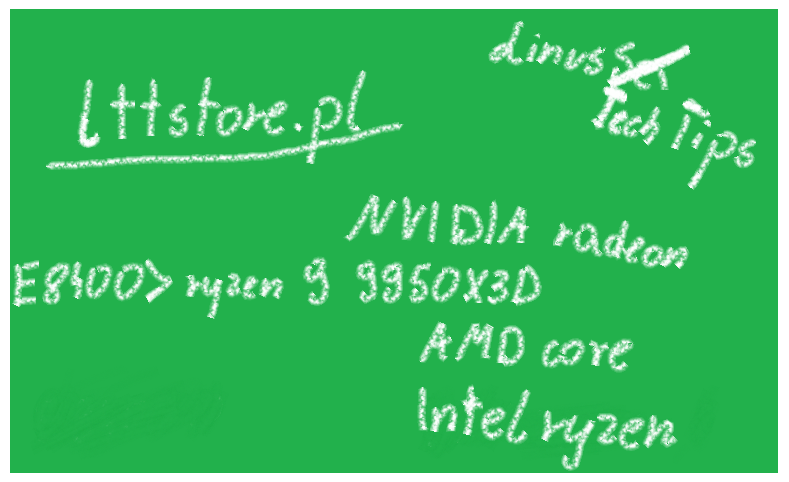 linus Sex
Tech Tips
lttstore.pl
NVIDIA radeon
E8400> ryzen 9 9950X3D
AMD core
Intel ryzen